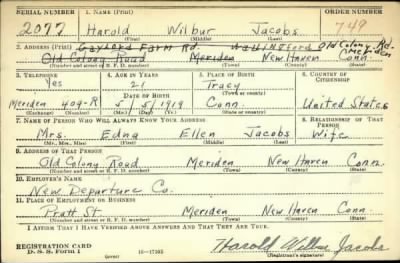 SERIAL NUMBER
1. NAME (Print)
ORDER NUMBER
2077
Harold Wilbur Jacobs
749
(First) (Middle) (Last)
2. ADDRESS (Print)
Gaylord Farm Rd. Wallingford Old Colony Rd.
Old Colony Road Meriden New Haven Conn.
(Number and street or R. F. D. number) (Town) (County) (State)
3. TELEPHONE
4. AGE IN YEARS
5. PLACE OF BIRTH
6. COUNTRY OF CITIZENSHIP
Yes
21
Tracy
DATE OF BIRTH
(Town or county)
Meriden 409-R
5/5/1919
Conn.
United States
(Exchange) (Number)
(Mo.) (Day) (Yr.)
(State or country)
7. NAME OF PERSON WHO WILL ALWAYS KNOW YOUR ADDRESS
8. RELATIONSHIP OF THAT PERSON
Mrs. Edna Ellen Jacobs Wife
(Mr., Mrs., Miss) (First) (Middle) (Last)
9. ADDRESS OF THAT PERSON
Old Colony Road Meriden New Haven Conn
(Number and street or R. F. D. number) (Town) (County) (State)
10. EMPLOYER'S NAME
New Departure Co.
11. PLACE OF EMPLOYMENT OR BUSINESS
Pratt St. Meriden New Haven Conn
(Number and street or R. F. D. number) (Town) (County) (State)
I AFFIRM THAT I HAVE VERIFIED ABOVE ANSWERS AND THAT THEY ARE TRUE.
REGISTRATION CARD
D. S. S. Form 1
(over)
Harold Wilbur Jacobs
(Registrant's signature)